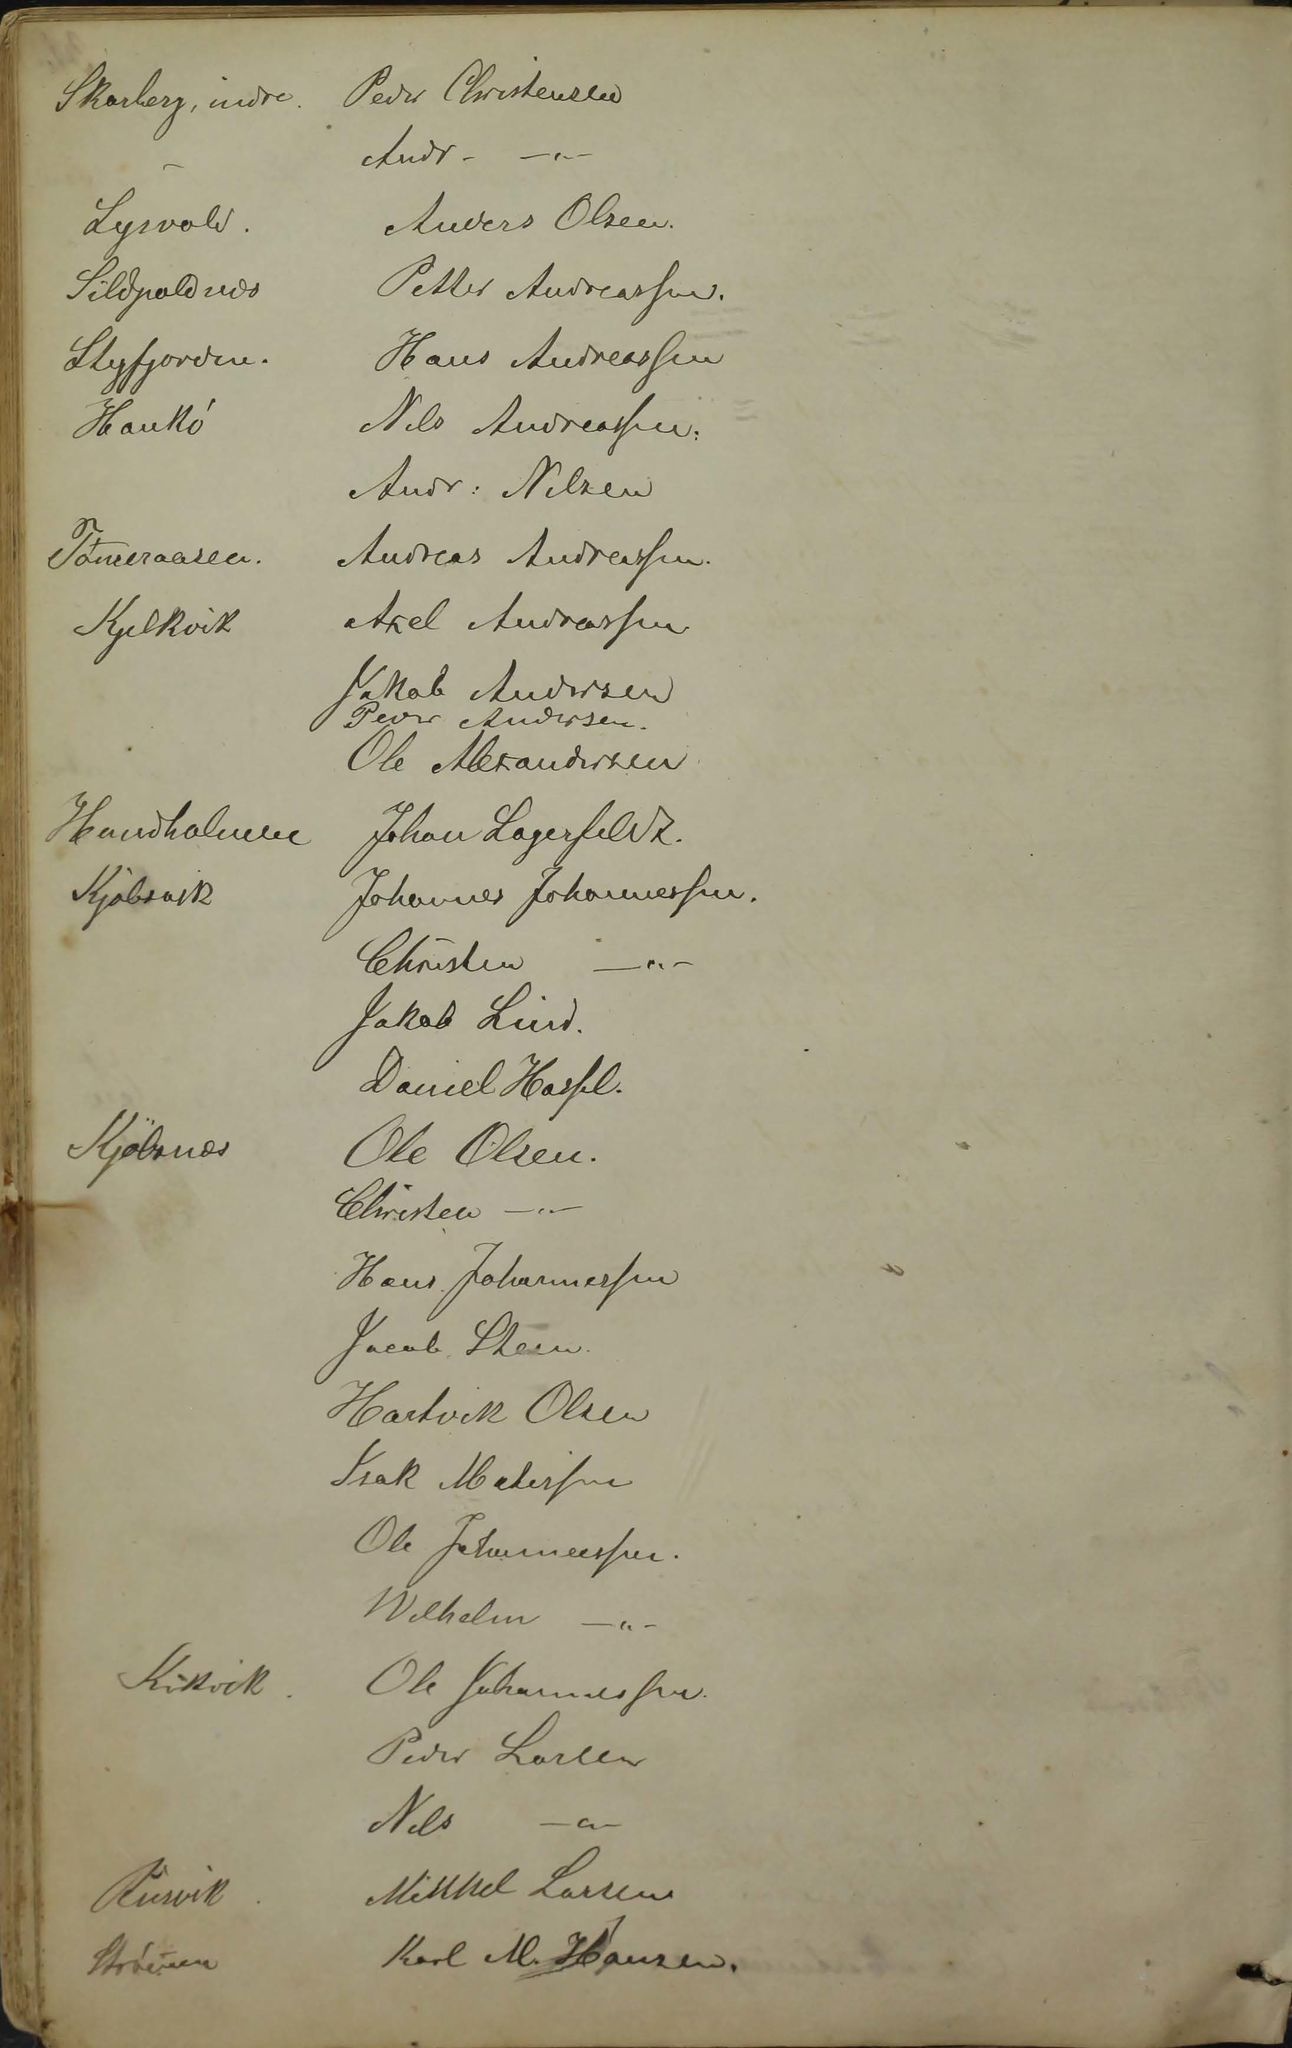 Skarberg, indre. Peder Christensen
— Andr - —"—
Lysvold. Anders Olsen.
Sildpoldnæs Petter Andreassen.
Styfjorden. Hans Andreassen
Hankö Nils Andreassen.
Andr: Nilsen
Tömeraasen. Andreas Andreassen.
Kjelkvik Axel Andreassen
Jakob Andersen
Peder Andersen.
Ole Alexandersen
Haundholmen Johan Lagerfeldt.
Kjöbsvik Johannes Johannessen.
Christen —"—
Jakob Lind.
Daniel Hassel.
Kjöbsnæs Ole Olsen.
Christen —"—
Hans Johannessen
Jacob Steen.
Hartvik Olsen
Isak Matissen
Ole Johannessen.
Wilhelm —"—
Kikvik. Ole Johannessen.
Peder Larsen
Nils —"—
Rusvik. Mikkel Larsen
Strömen Karl M. Hansen.